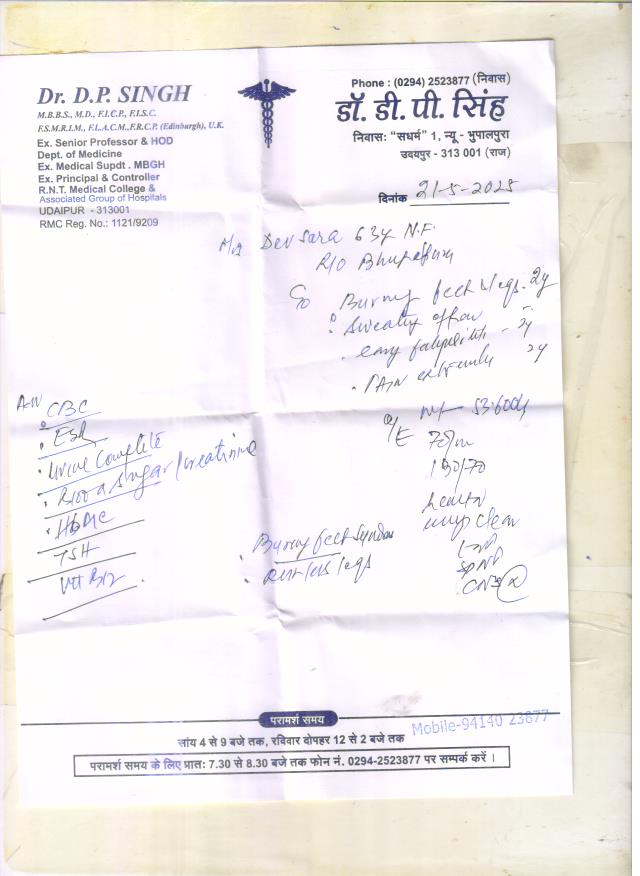 Dr. D.P. SINGH
M.B.B.S., M.D., F.I.C.P., F.I.S.C.
F.S.M.R.I.M., F.I.A.C.M.,F.R.C.P. (Edinburgh), U.K.
Ex. Senior Professor & HOD
Dept. of Medicine
Ex. Medical Supdt . MBGH
Ex. Principal & Controller
R.N.T. Medical College &
Associated Group of Hospitals
UDAIPUR - 313001
RMC Reg. No.: 1121/9209
Phone : (0294) 2523877 (निवास)
डॉ. डी. पी. सिंह
निवास: "सधर्म" 1, न्यू - भुपालपुरा
उदयपुर - 313 001 (राज)
दिनांक 21-5-2025
Dev Sara 63y N.F.
R/O Bhupalpura
C/o Burning feet & legs - 2y
. Sweating
. easy - 2y
. PAIN extremity 2y
Adv
. CBC
. ESR
. Urine Complete
. Blood Sugar / creatinine
. HbA1c
TSH
Vit B12
O/E wt - 53.600kg
70/m
130/70
heart N
lungs clear
L-NP
SpNP
CNS N
. Burning feet syndrome
. Restless legs
परामर्श समय
सांय 4 से 9 बजे तक, रविवार दोपहर 12 से 2 बजे तक
Mobile-94140 23877
परामर्श समय के लिए प्रात: 7.30 से 8.30 बजे तक फोन नं. 0294-2523877 पर सम्पर्क करें ।